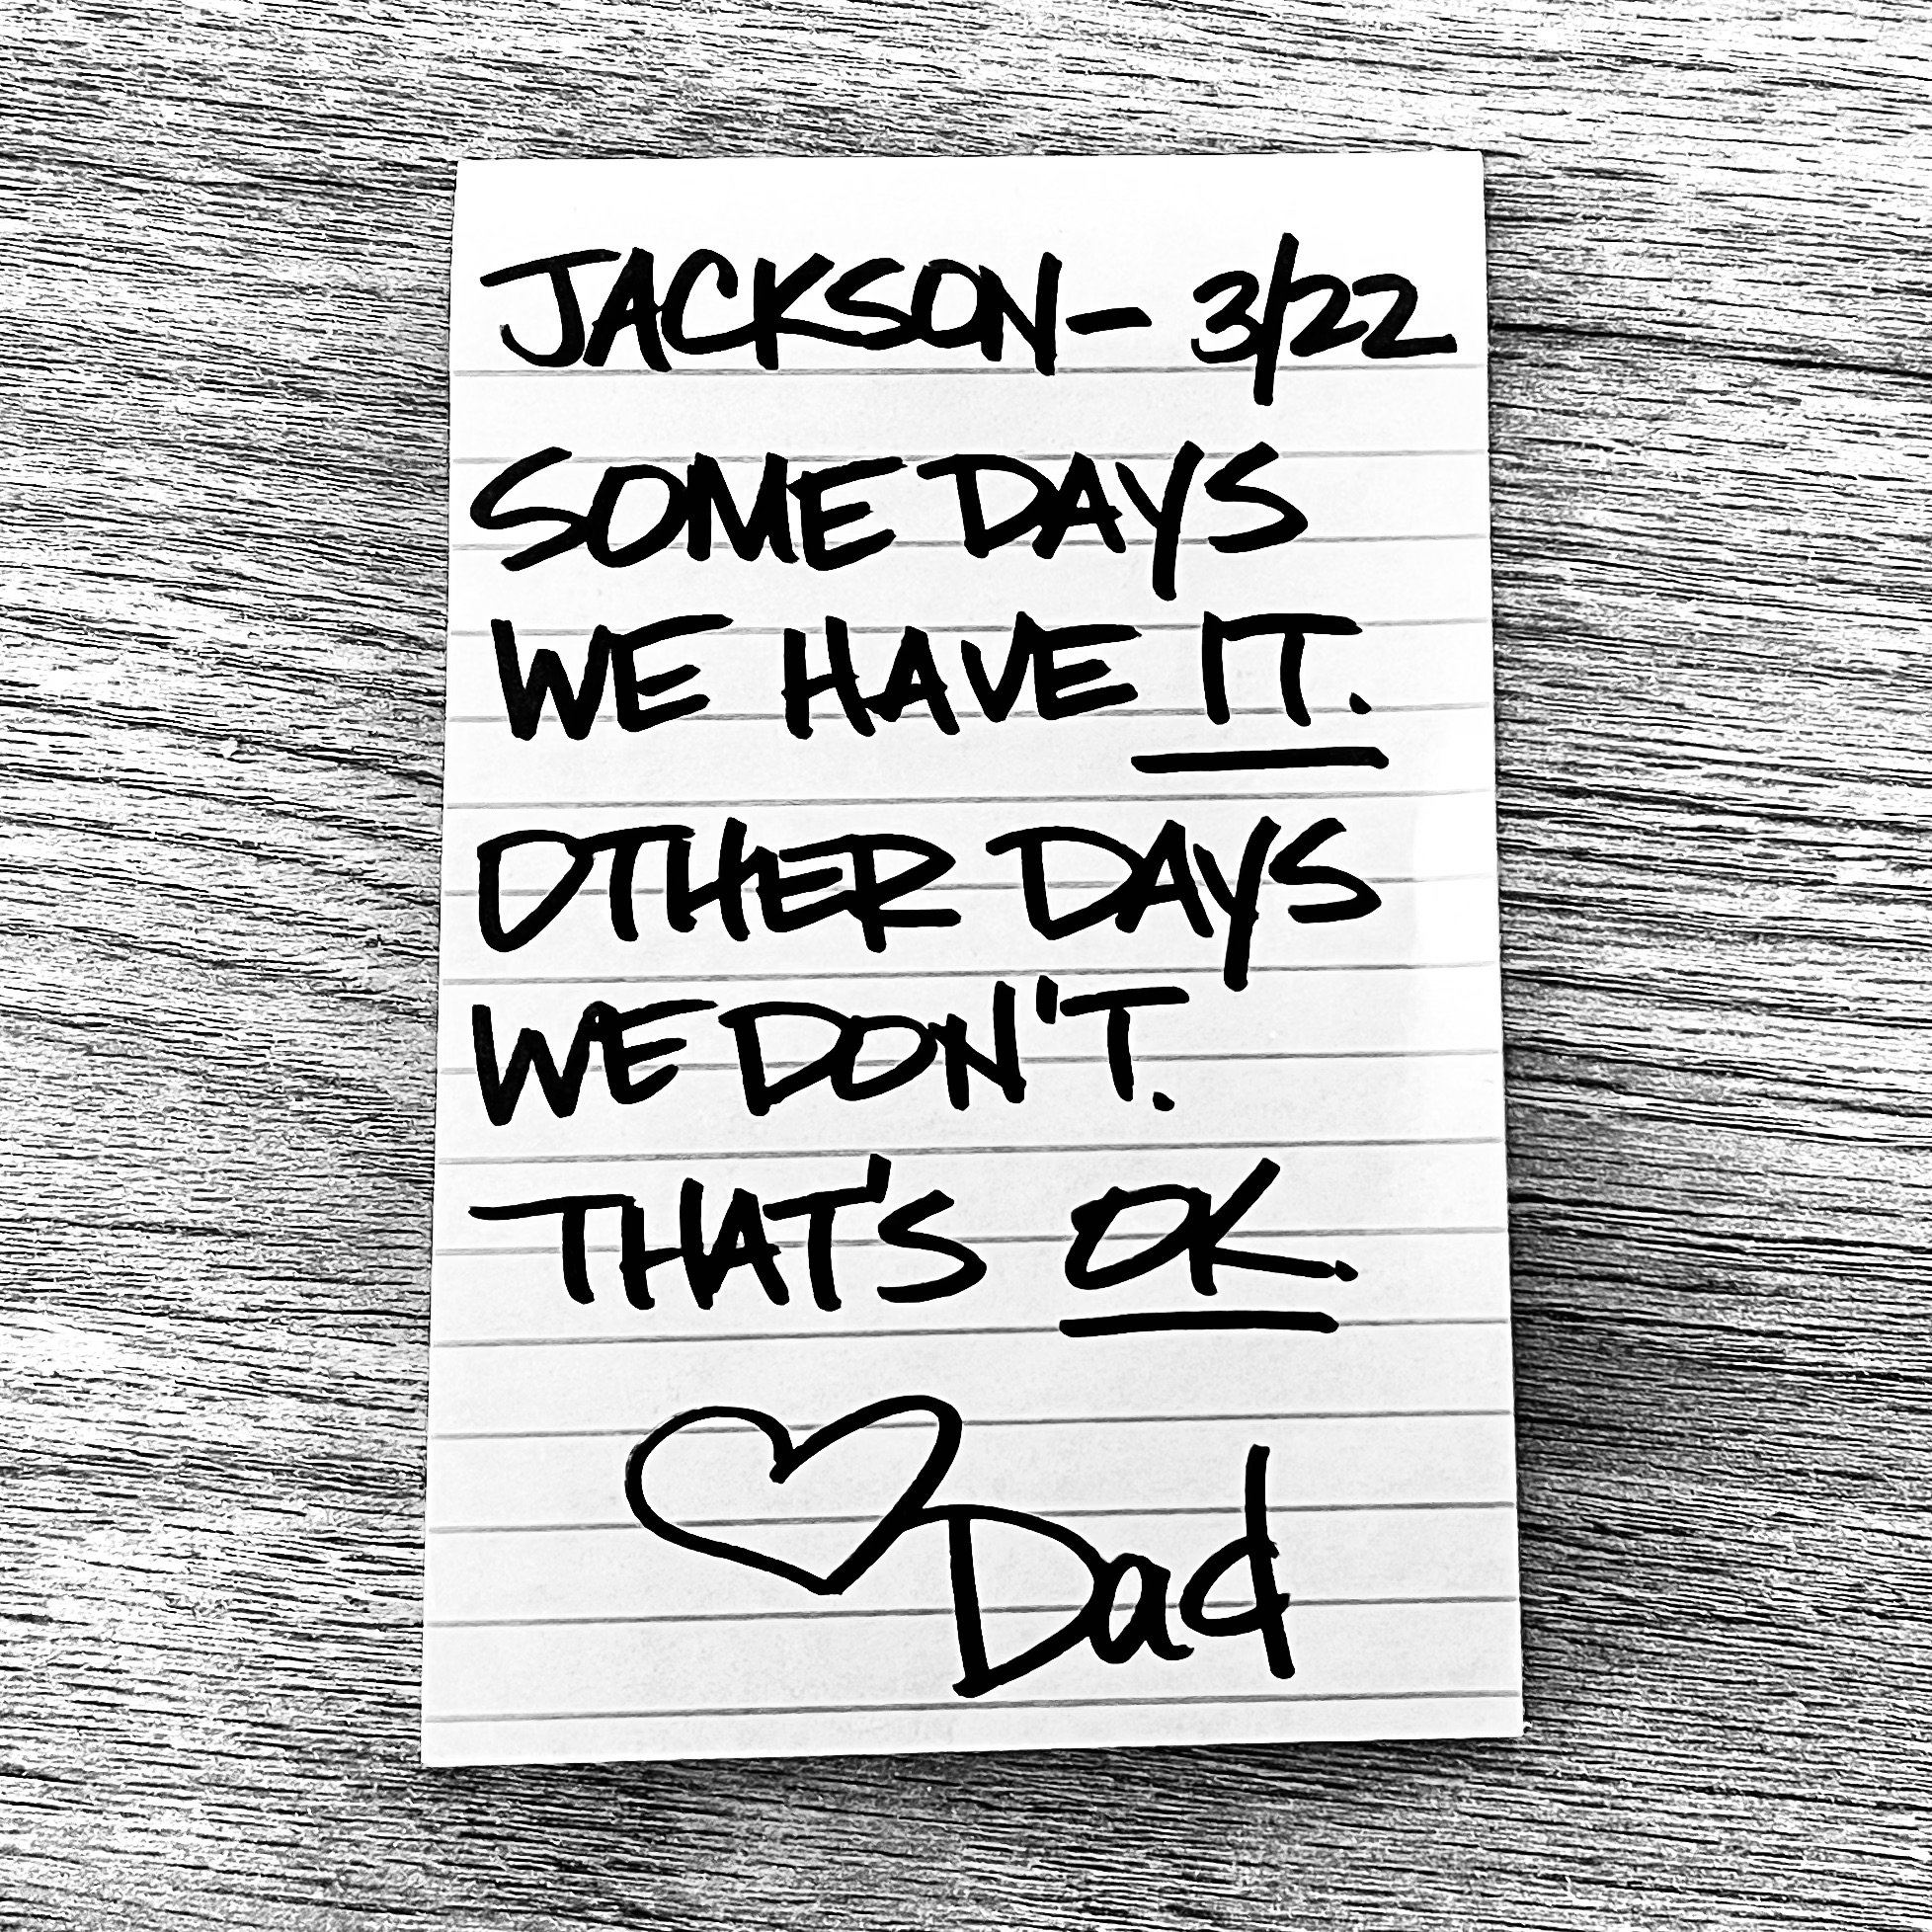 JACKSON- 3/22
SOME DAYS
WE HAVE IT.
OTHER DAYS
WE DON'T.
THAT'S OK.
Dad